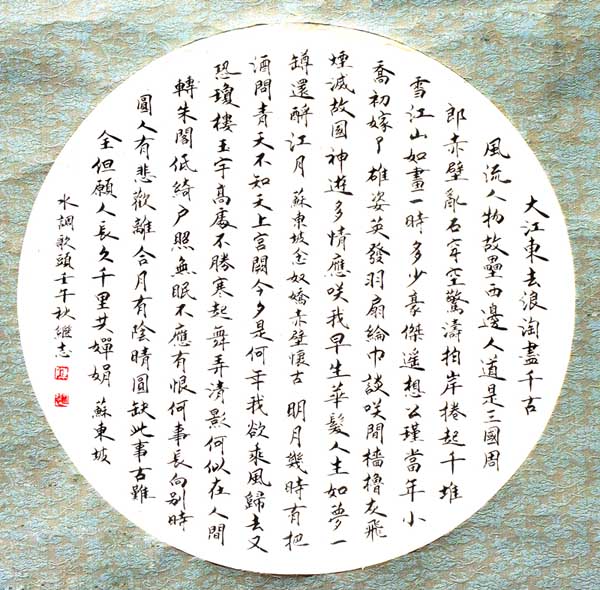 大江東去浪淘盡千古
風流人物故壘西邊人道是三國周
郎赤壁亂石穿空驚濤拍岸捲起千堆
雪江山如畫一時多少豪傑遙想公瑾當年小
喬初嫁了雄姿英發羽扇綸巾談笑間檣櫓灰飛
煙滅故國神遊多情應笑我早生華髮人生如夢一
罇還酹江月 蘇東坡念奴嬌赤壁懷古 明月幾時有把
酒問青天不知天上宮闕今夕是何年我欲乘風歸去又
恐瓊樓玉宇高處不勝寒起舞弄清影何似在人間
轉朱閣低綺户照無眠不應有恨何事長向別時
圓人有悲歡離合月有陰晴圓缺此事古難
全但願人長久千里共嬋娟 蘇東坡
水調歌頭壬午秋繼志